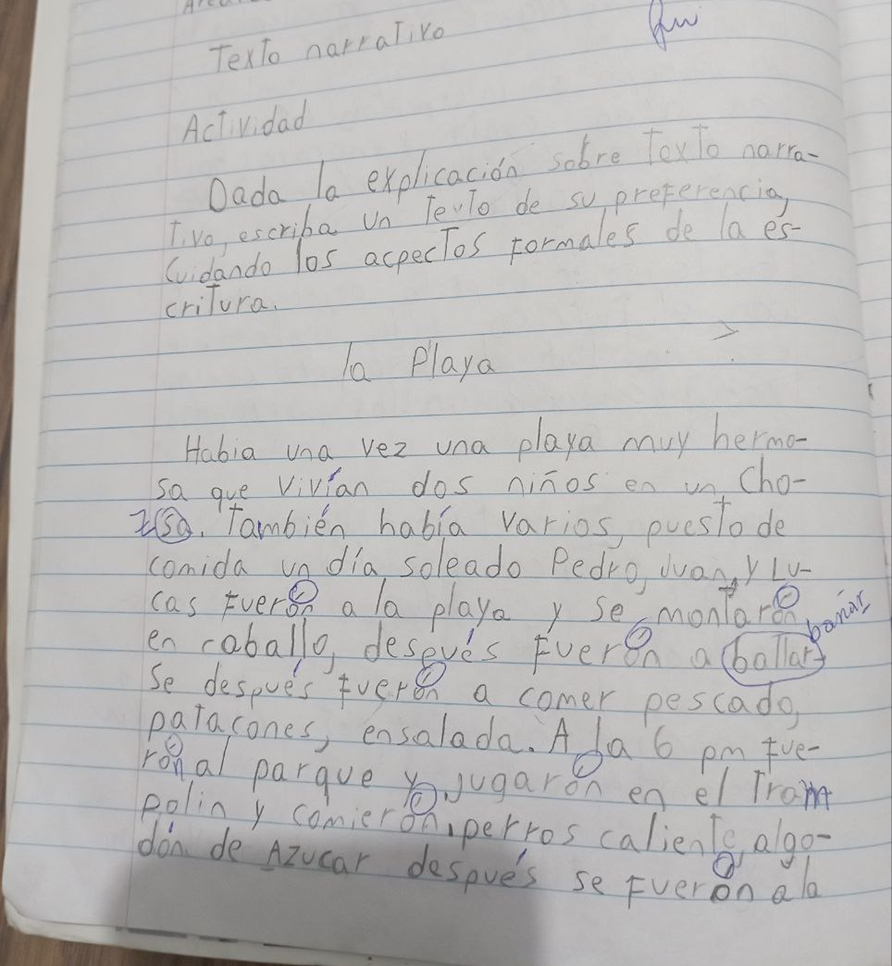 Texto narrativo
Actividad
Dada la explicación sobre Texto narra-
Tivo, escriba un Texto de su preferencia,
Cuidando los acpectos formales de la es-
critura.
la Playa
Habia una vez una playa muy hermo-
sa que vivían dos niños en un cho-
sa. También había varios, puesto de
comida un día soleado Pedro, Juan, y Lu-
cas Fuerón a la playa y se montarón
en caballo, después Fuerón a ballar
bañar
Se después fuerón a comer pescado,
patacones, ensalada. A la 6 pm fue-
rón al parque y jugarón en el Tram
polin y comierón, perros caliente, algo-
dón de Azucar después se Fuerón a la